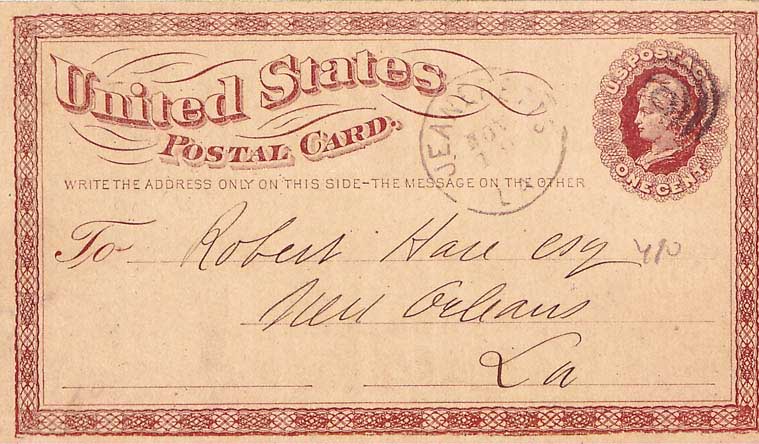 United States
POSTAL CARD.
U.S. POSTAGE
ONE CENT
NOV
LA
WRITE THE ADDRESS ONLY ON THIS SIDE-THE MESSAGE ON THE OTHER
To Robert Hare esq
New Orleans
La